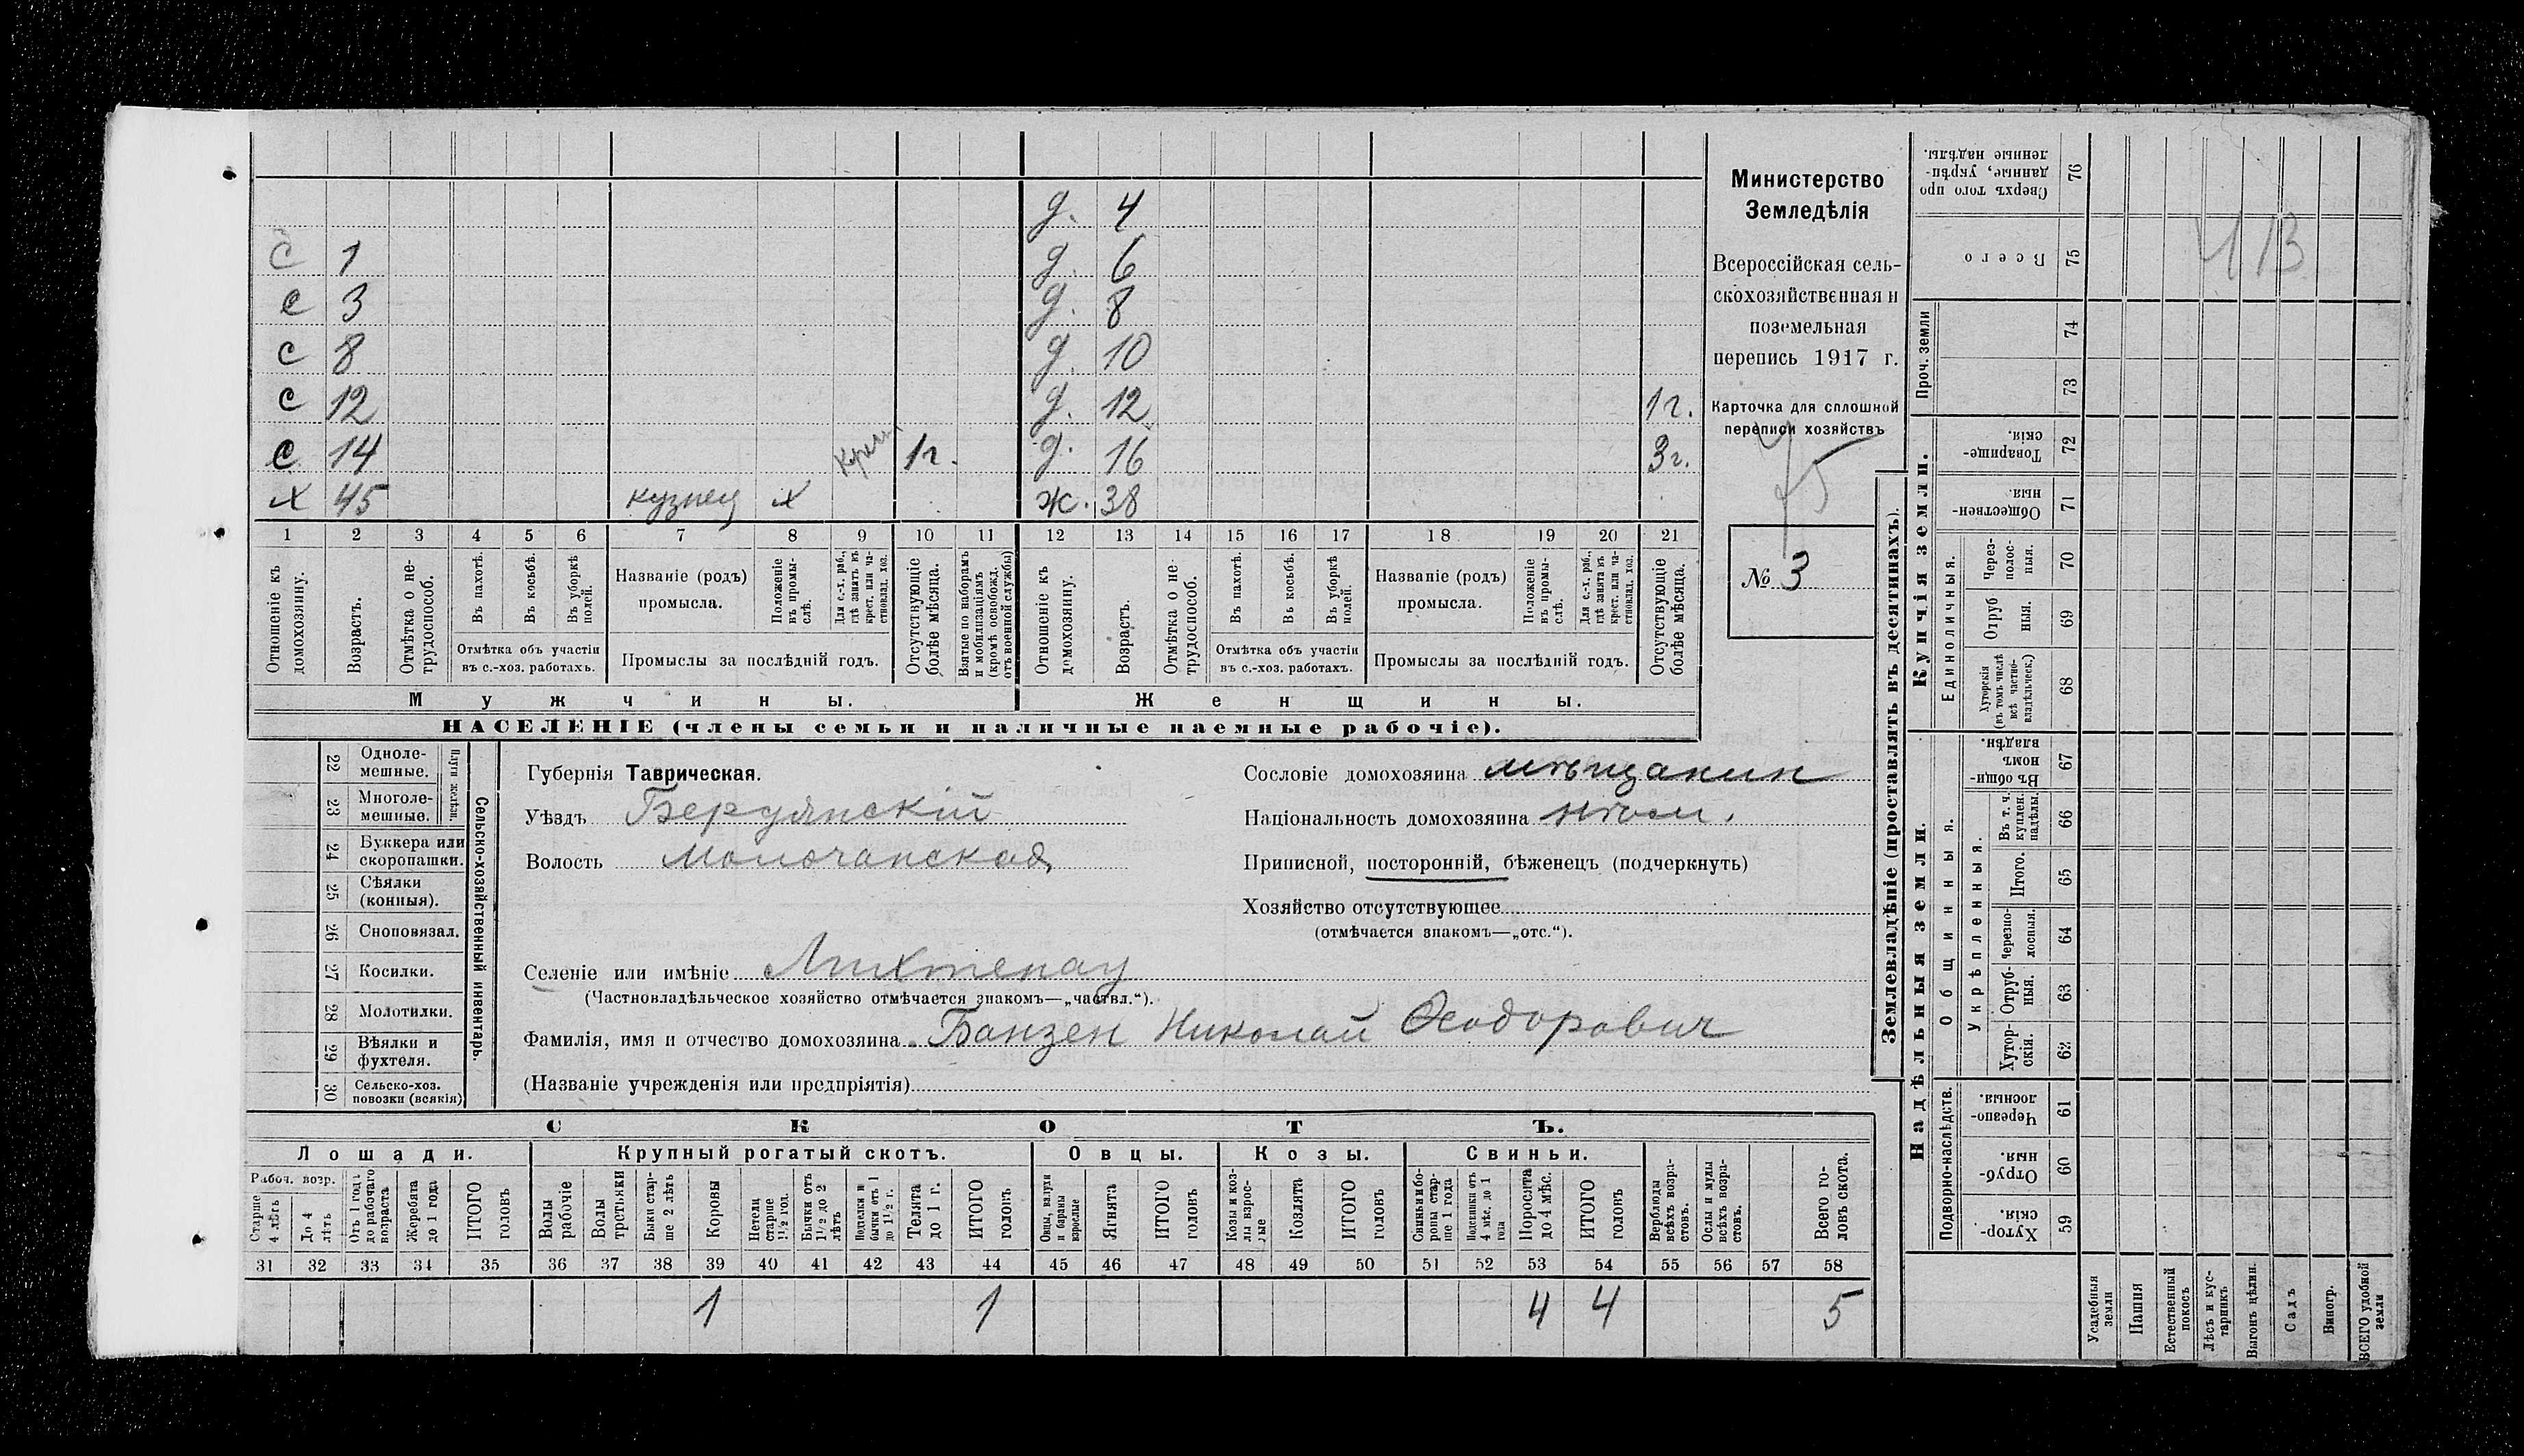 д. 4
с 1 д. 6
с 3 д. 8
с 8 д. 10
с 12 д. 12 1 г.
с 14 1 г. д. 16 3 г.
х 45 кузнец х ж. 38
1 2 3 4 5 6 7 8 9 10 11 12 13 14 15 16 17 18 19 20 21
Отношеніе къ домохозяину.
Возрастъ.
Отмѣтка о не-
трудоспособ.
Въ пахотѣ.
Въ косьбѣ.
Въ уборкѣ полей.
Отмѣтка объ участіи
въ с.-хоз. работахъ.
Названіе (родъ)
промысла.
Положеніе въ промы-
слѣ.
Для с.-х. раб., гдѣ занятъ въ крест. или ча-
стновлад. хоз.
Промыслы за послѣдній годъ.
Отсутствующіе болѣе мѣсяца.
Взятые по наборамъ и мобилизаціямъ (кромѣ освобожд. отъ военной службы)
Отношеніе къ домохозяину.
Возрастъ.
Отмѣтка о не-
трудоспособ.
Въ пахотѣ.
Въ косьбѣ.
Въ уборкѣ полей.
Отмѣтка объ участіи
въ с.-хоз. работахъ.
Названіе (родъ)
промысла.
Положеніе въ промы-
слѣ.
Для с.-х. раб., гдѣ занята въ крест. или ча-
стновлад. хоз.
Промыслы за послѣдній годъ.
Отсутствующіе болѣе мѣсяца.
Мужчины. Женщины.
НАСЕЛЕНІЕ (члены семьи и наличные наемные рабочіе).
Министерство
Земледѣлія
Всероссійская сель-
скохозяйственная и
поземельная
перепись 1917 г.
Карточка для сплошной
переписи хозяйствъ
№ 3
22 Одноле-
мешные.
23 Многоле-
мешные.
Плуги желѣзн.
24 Буккера или
скоропашки.
25 Сѣялки
(конныя).
26 Сноповязал.
27 Косилки.
28 Молотилки.
29 Вѣялки и
фухтеля.
30 Сельско-хоз.
повозки (всякія)
Сельско-хозяйственный инвентарь.
Губернія Таврическая.
Уѣздъ Бердянскій
Волость Молочанская
Сословіе домохозяина мѣщанин
Національность домохозяина нѣм.
Приписной, посторонній, бѣженецъ (подчеркнуть)
Хозяйство отсутствующее
(отмѣчается знакомъ—„отс.“).
Селеніе или имѣніе Лихтенау
(Частновладѣльческое хозяйство отмѣчается знакомъ—„частвл.“).
Фамилія, имя и отчество домохозяина Банзен Николай Ѳеодорович
(Названіе учрежденія или предпріятія)
СКОТЪ.
Лошади. Крупный рогатый скотъ. Овцы. Козы. Свиньи.
Рабоч. возр.
Старше 4 лѣтъ
До 4 лѣтъ
Отъ 1 года до рабочаго возраста
Жеребята до 1 года
ИТОГО головъ
Волы рабочіе
Волы третьяки
Быки стар-
ше 2 лѣтъ
Коровы
Нетели старше 1½ год.
Бычки отъ 1½ до 2 лѣтъ
Подтелки и бычки отъ 1 до 1½ г.
Телята до 1 г.
ИТОГО головъ
Овцы, валухи и бараны взрослые
Ягнята
ИТОГО головъ
Козы и коз-
лы взрос-
лые
Козлята
ИТОГО головъ
Свиньи и бо-
ровы стар-
ше 1 года
Подсвинки отъ 4 мѣс. до 1 года
Поросята до 4 мѣс.
ИТОГО головъ
Верблюды всѣхъ возра-
стовъ.
Ослы и мулы всѣхъ возра-
стовъ.
Всего го-
ловъ скота.
31 32 33 34 35 36 37 38 39 40 41 42 43 44 45 46 47 48 49 50 51 52 53 54 55 56 57 58
1 1 4 4 5
Землевладѣніе (проставлять въ десятинахъ).
Купчія земли.
Надѣльныя земли.
Сверхъ того про
данные, укрѣп-
ленные надѣлы. 76
Всего 75
413
Проч. земли
74
73
Товарище-
скія. 72
Обществен-
ныя. 71
Единоличныя.
Через-
полос-
ныя. 70
Отруб
ныя. 69
Хуторскія (въ томъ числѣ всѣ частно-
владѣльческ.) 68
Общинныя.
Въ общин-
номъ владѣн. 67
Укрѣпленныя.
Въ т. ч. куплен. надѣлы. 66
Итого. 65
Черезпо-
лосныя. 64
Отруб-
ныя. 63
Хутор-
скія. 62
Подворно-наслѣдств.
Черезпо-
лосныя. 61
Отруб-
ныя. 60
Хутор-
скія. 59
Усадебныя земли
Пашня
Естественный покосъ
Лѣсъ и кус-
тарникъ
Выгонъ цѣлин.
Садъ
Виногр.
ВСЕГО удобной земли